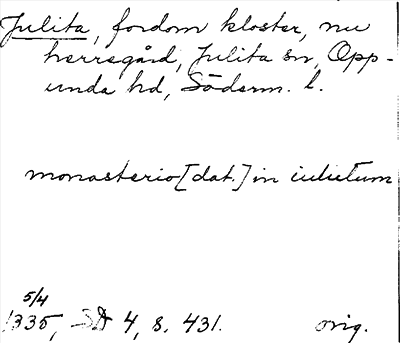 Julita, fordom kloster, nu
herregård, Julita sn, Opp-
unda hd, Söderm. l.
monasterio [dat.] in iulietum
5/4
1335, SD 4, s. 431. orig.